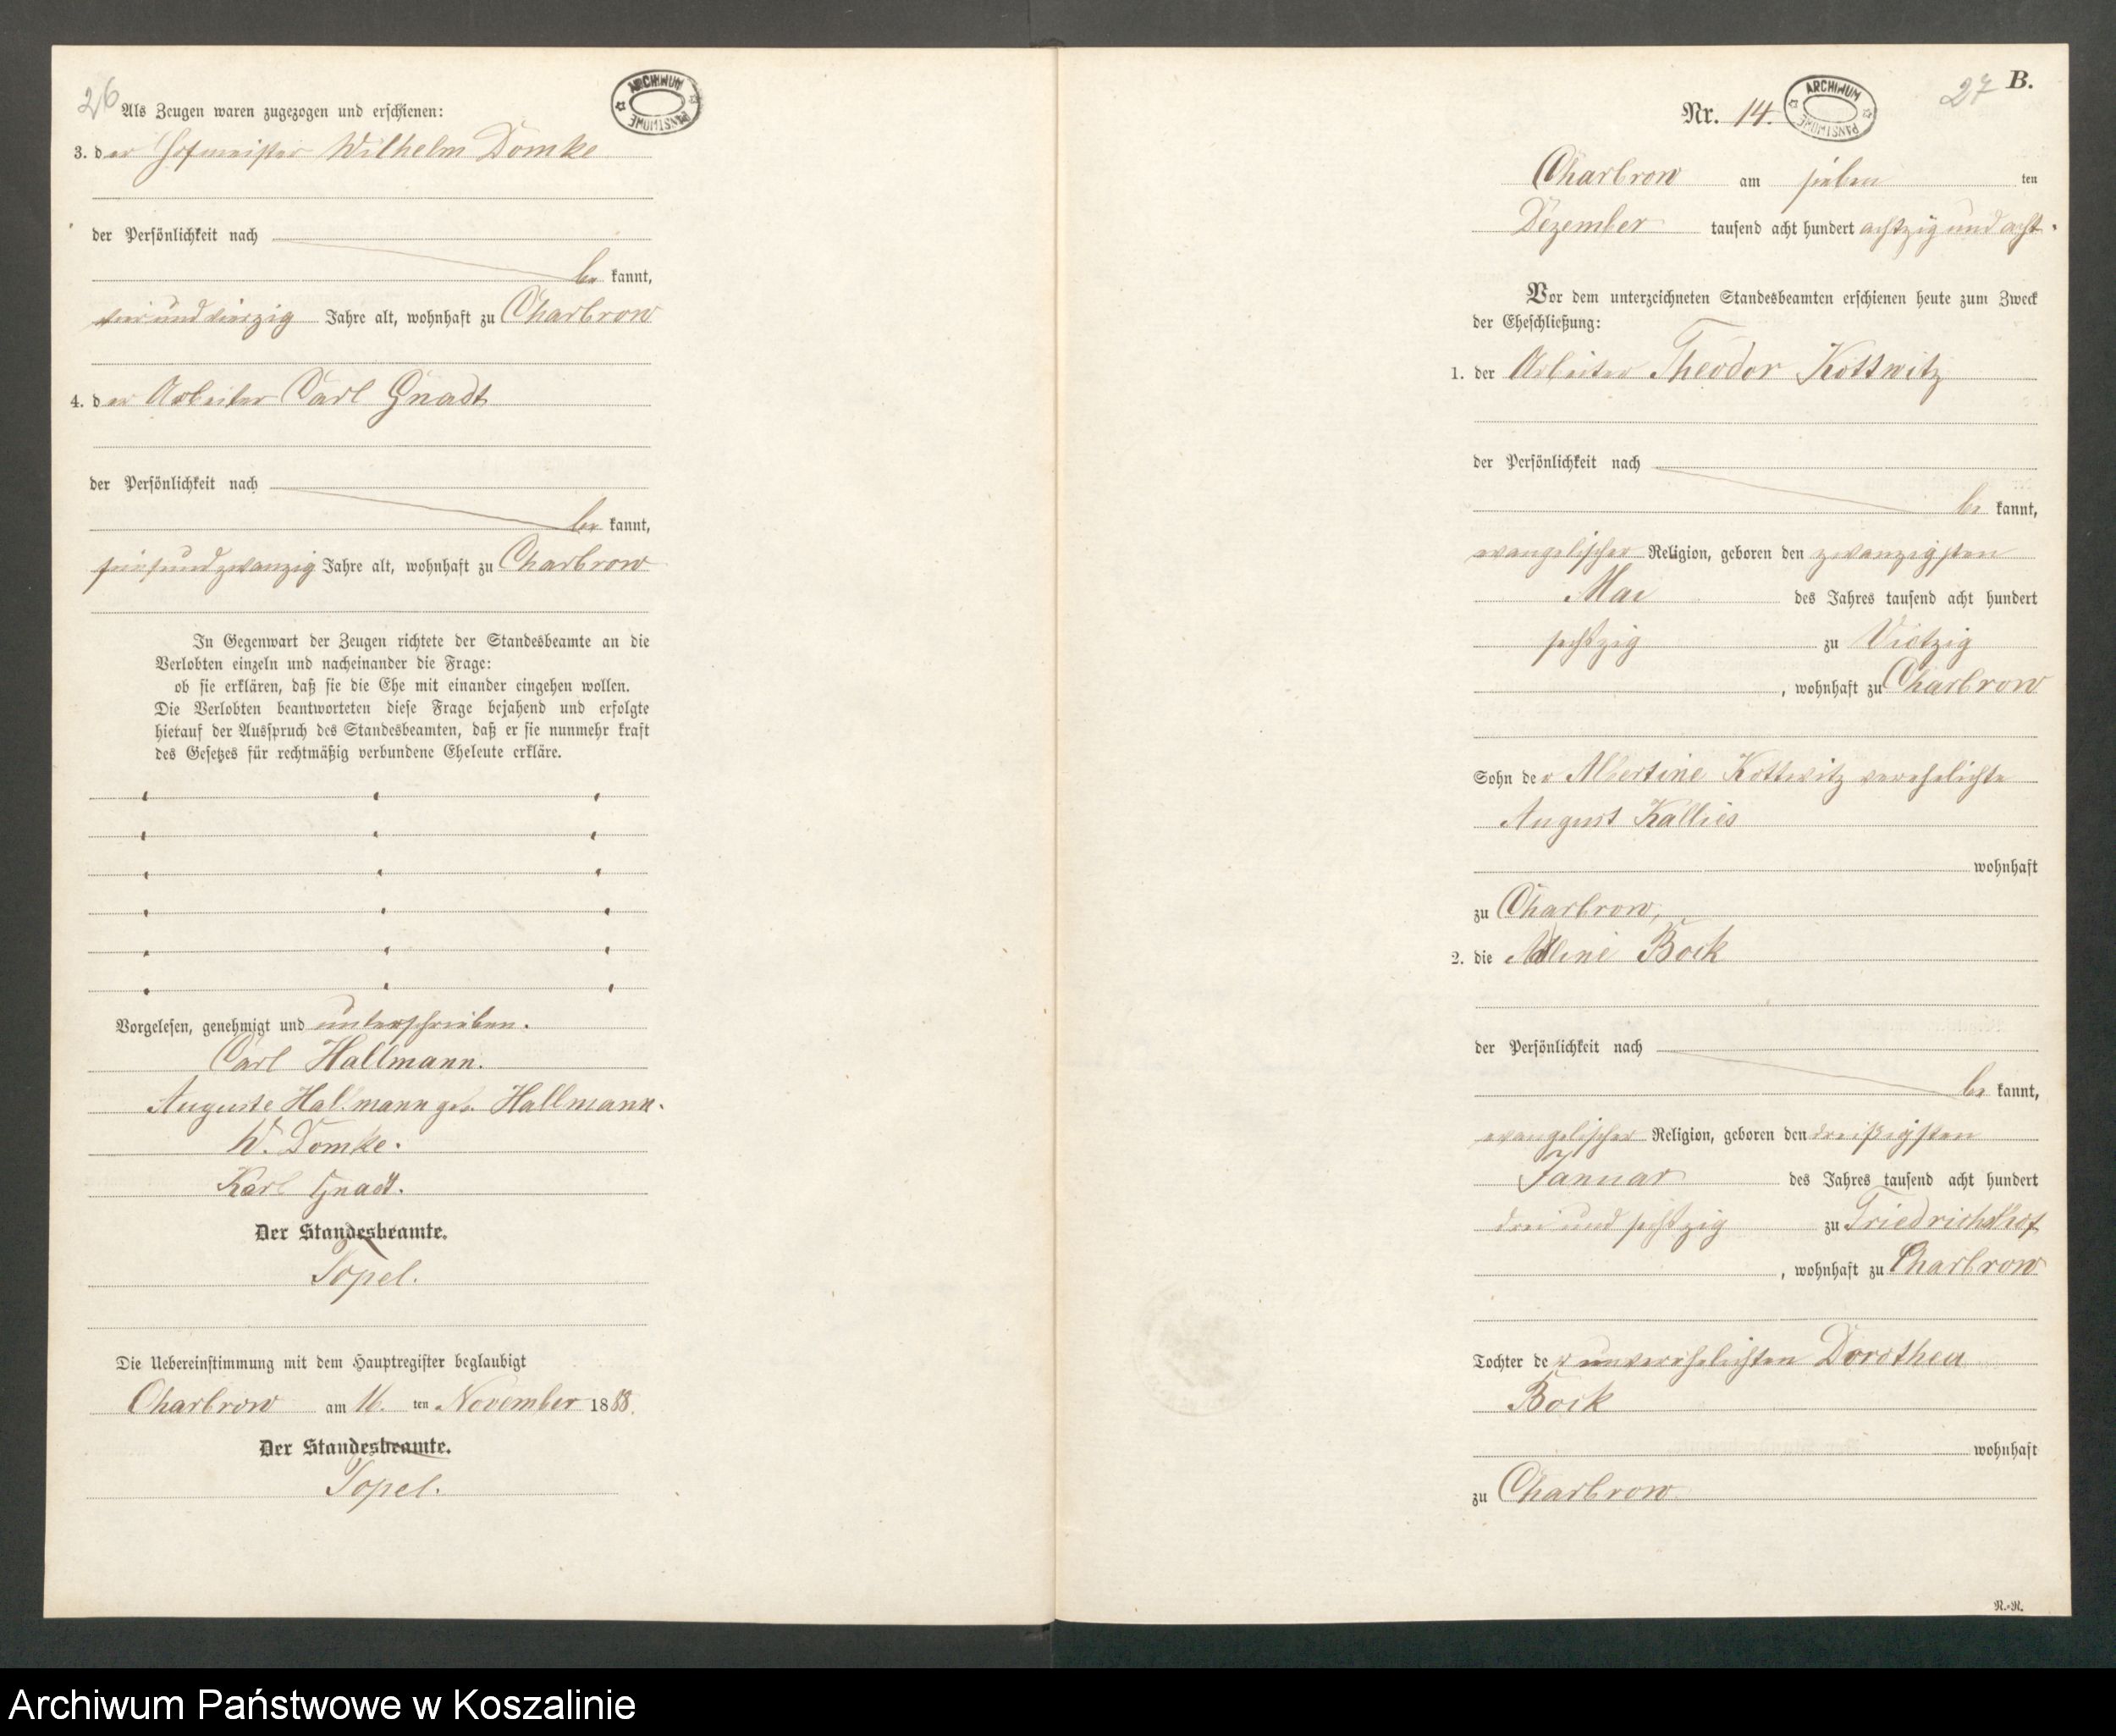 26
Als Zeugen waren zugezogen und erschienen:
ARCHIWUM PAŃSTWOWE
3. der Hofmeister Wilhelm Domke
der Persönlichkeit nach
be kannt,
vier und vierzig Jahre alt, wohnhaft zu Charbrow
4. der Arbeiter Carl Gnadt
der Persönlichkeit nach
be kannt,
fünf und zwanzig Jahre alt, wohnhaft zu Charbrow
In Gegenwart der Zeugen richtete der Standesbeamte an die
Verlobten einzeln und nacheinander die Frage:
ob sie erklären, daß sie die Ehe mit einander eingehen wollen.
Die Verlobten beantworteten diese Frage bejahend und erfolgte
hierauf der Ausspruch des Standesbeamten, daß er sie nunmehr kraft
des Gesetzes für rechtmäßig verbundene Eheleute erkläre.
Vorgelesen, genehmigt und unterschrieben.
Carl Hallmann.
Auguste Hallmann geb. Hallmann.
W. Domke.
Karl Gnadt.
Der Standesbeamte.
Topel.
Die Uebereinstimmung mit dem Hauptregister beglaubigt
Charbrow am 16. ten November 1888.
Der Standesbeamte.
Topel.
27 B.
Nr. 14.
ARCHIWUM PAŃSTWOWE
Charbrow am sieben ten
Dezember tausend acht hundert achtzig und acht.
Vor dem unterzeichneten Standesbeamten erschienen heute zum Zweck
der Eheschließung:
1. der Arbeiter Theodor Kottwitz
der Persönlichkeit nach
be kannt,
evangelischer Religion, geboren den zwanzigsten
Mai des Jahres tausend acht hundert
sechszig zu Vietzig
, wohnhaft zu Charbrow
Sohn der Albertine Kottwitz verehelichte
August Kallies
wohnhaft
zu Charbrow,
2. die Bock
der Persönlichkeit nach
be kannt,
evangelischer Religion, geboren den dreißigsten
Januar des Jahres tausend acht hundert
drei und sechszig zu Friedrichshof
, wohnhaft zu Charbrow
Tochter der unverehelichten Dorothea
Bock
wohnhaft
zu Charbrow
R.=R.
Archiwum Państwowe w Koszalinie